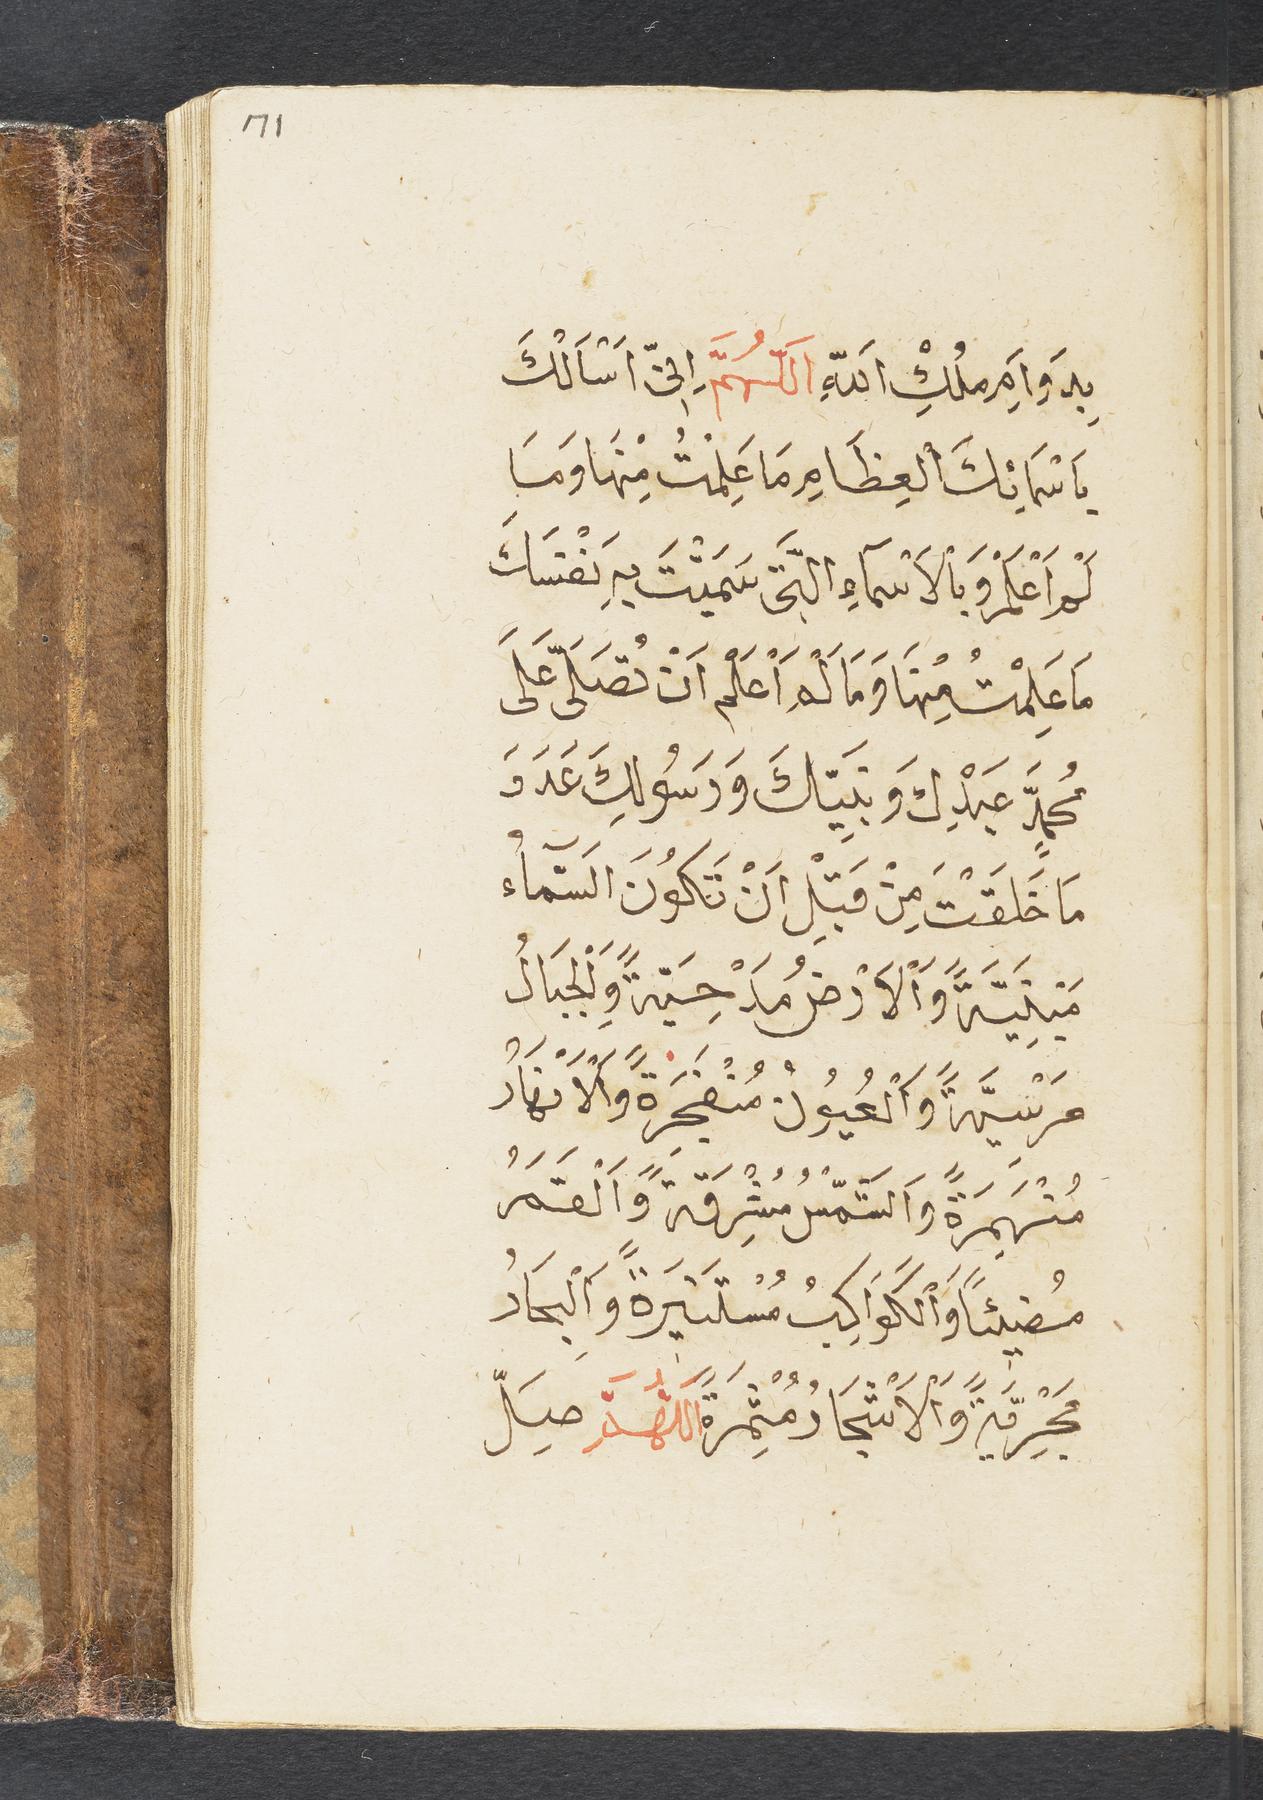 ١٦١
بِدَوَامِ مُلْكِ اللّٰهِ اَللّٰهُمَّ اِنِّى اَسْاَلُكَ
بِاَسْمَائِكَ الْعِظَامِ مَا عَلِمْتُ مِنْهَا وَمَا
لَمْ اَعْلَمْ وَبِالْاَسْمَآءِ الَّتِى سَمَّيْتَ بِهِ نَفْسَكَ
مَا عَلِمْتُ مِنْهَا وَمَا لَمْ اَعْلَمْ اَنْ تُصَلِّىَ عَلَى
مُحَمَّدٍ عَبْدِكَ وَنَبِيِّكَ وَرَسُولِكَ عَدَدَ
مَا خَلَقْتَ مِنْ قَبْلِ اَنْ تَكُونَ السَّمَآءُ
مَبْنِيَّةً وَالْاَرْضُ مَدْحِيَّةً وَالْجِبَالُ
مَرْسِيَّةً وَالْعُيُونُ مُنْفَجِرَةً وَالْاَنْهَارُ
مُنْهَمِرَةً وَالشَّمْسُ مُشْرِقَةً وَالْقَمَرُ
مُضِيْئًا وَالْكَوَاكِبُ مُسْتَنِيْرَةً وَالْبِحَارُ
مَجْرِيَّةً وَالْاَشْجَارُ مُثْمِرَةً اَللّٰهُمَّ صَلِّ